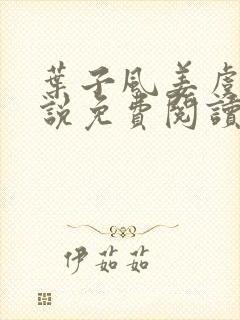 葉子風姜虞
說免費閱讀
伊茹茹